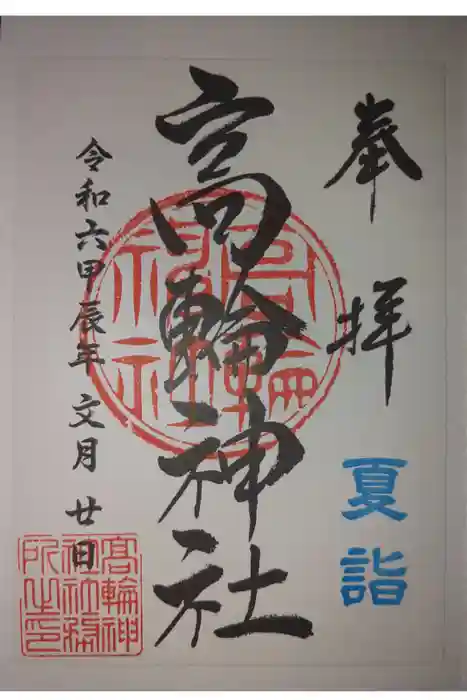 奉拝
夏詣
高輪神社
令和六甲辰年 文月 廿日
高輪神社
髙輪神社務所之印